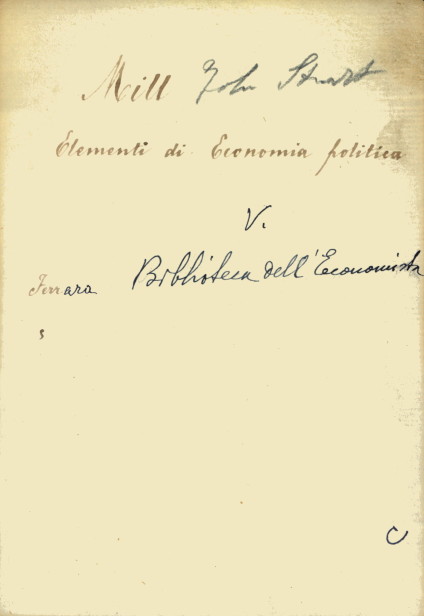 Mill John Stuart
Elementi di Economia politica
V.
Ferrara Biblioteca dell'Economista
s
C